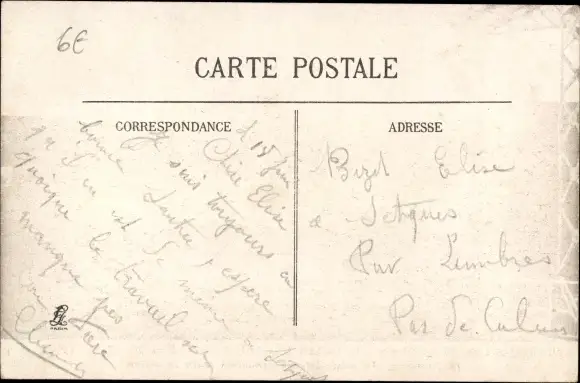 6€
CARTE POSTALE
CORRESPONDANCE
ADRESSE
15 juin
Chère Elise
Je suis toujours en
bonne Santée j'espère
qu'il en est de même a Setques
quoique le travail ne
manque pas
Elise
a Setques
Par Lumbres
Pas de Calais